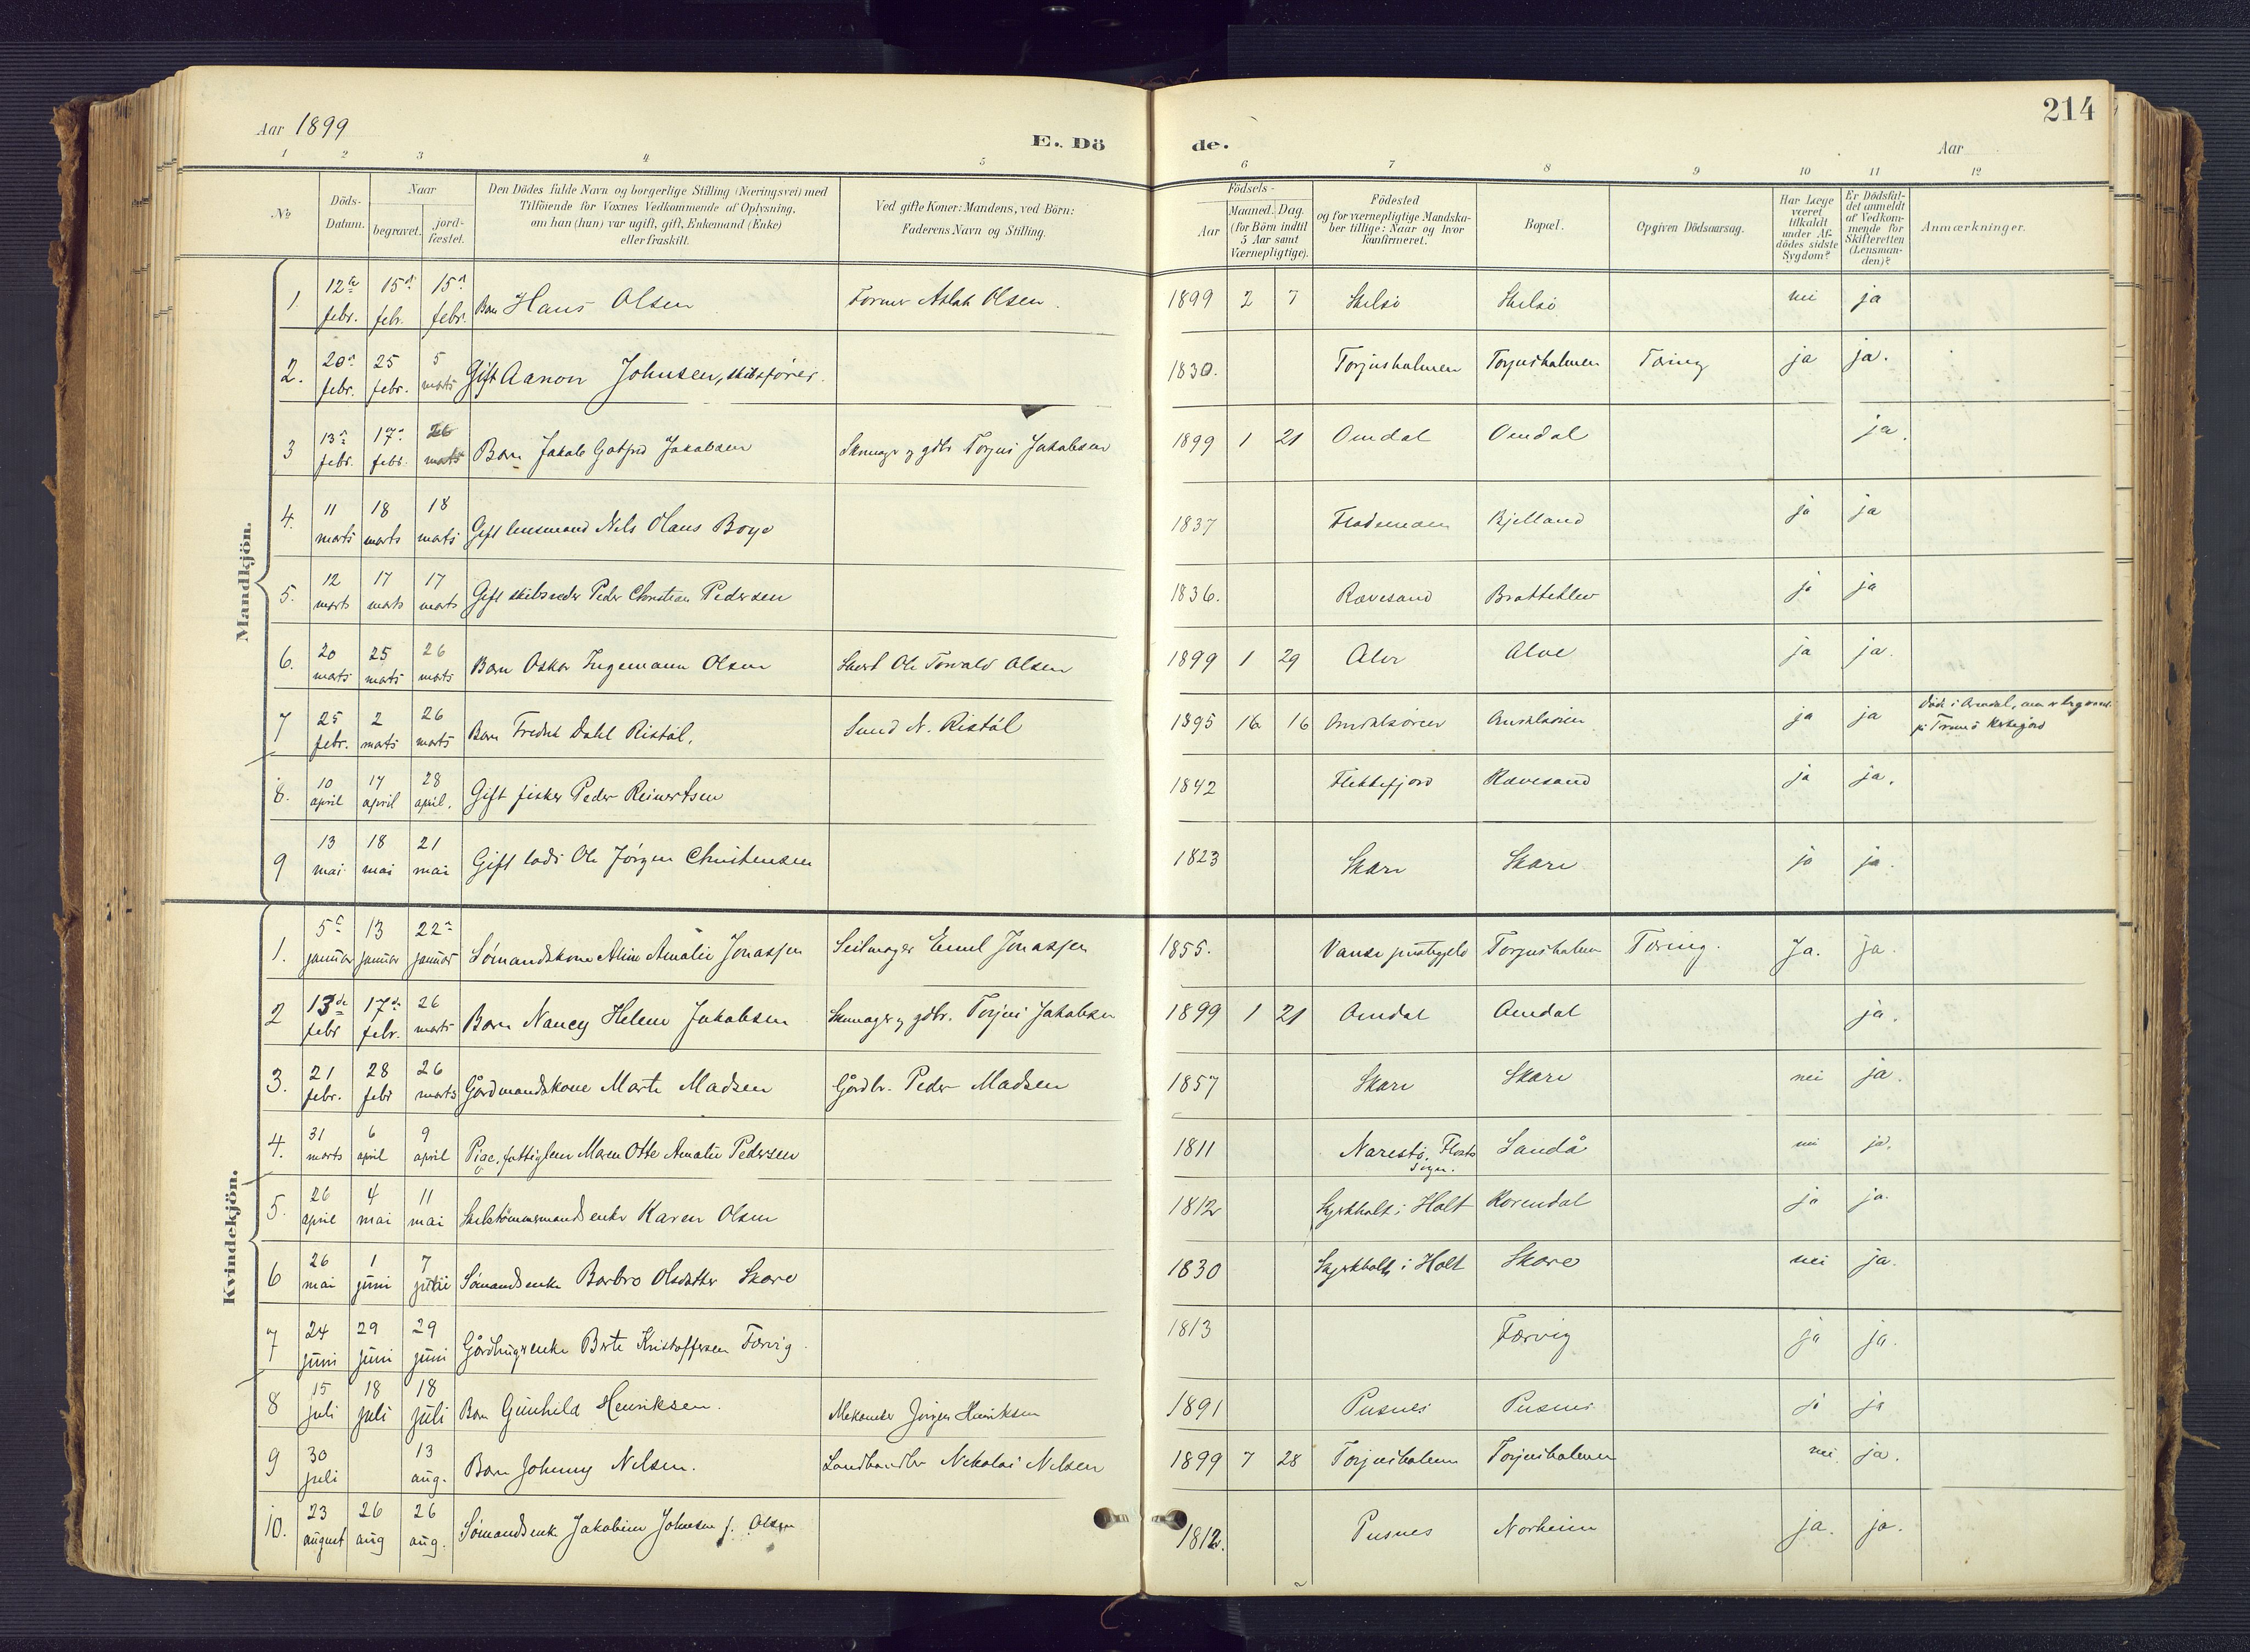 214
Aar 1899
E. Dö de.
Aar
1 2 3 4 5 6 7 8 9 10 11 12
No
Döds-
Datum.
Naar
begravet.
jord-
fæstet.
Den Dödes fulde Navn og borgerlige Stilling (Næringsvei) med
Tilföiende for Voxnes Vedkommende af Oplysning,
om han (hun) var ugift, gift, Enkemand (Enke)
eller fraskilt.
Ved gifte Koner: Mandens, ved Börn:
Faderens Navn og Stilling.
Födsels-
Aar
Maaned. Dag.
(for Börn indtil
5 Aar samt
Værnepligtige).
Födested
og for værnepligtige Mandska-
ber tillige: Naar og hvor
konfirmeret.
Bopæl.
Opgiven Dödsaarsag.
Har Læge
været
tilkaldt
under Af-
dödes sidste
Sygdom?
Er Dödsfal-
det anmeldt
af Vedkom-
mende for
Skifteretten
(Lensman-
den)?
Anmærkninger.
Mandkjön.
1. 12te febr. 15de feb. 15de febr. Barn Hans Olsen Former Aslak Olsen 1899 2 7 Skilsö Skilsö nei ja
2. 20de febr. 25 febr. 5 marts Gift Aanon Johnsen, skibsfører. 1830. Torjusholmen Torjusholmen Tæring ja ja.
3 13de febr. 17de febr. 26 marts Barn Jakob Gotfred Jakobsen Skomager og gdbr Torjus Jakobsen 1899 1 21 Omdal Omdal ja.
4. 11 marts 18 marts 18 marts Gift lensmand Nels Olaus Boye 1837 Kjelland ja ja
5. 12 marts 17 marts 17 marts Gift skibsreder Peder Christian Pedersen 1836. Rævesand Bratteklev ja ja
6. 20 marts 25 marts 26 marts Barn Oskar Ingemann Olsen Ole Torvald Olsen 1899 1 29 Alve Alve ja ja.
7 25 febr. 2 marts 26 marts Barn Fredrik Dahl Ristöl. Smed N. Ristöl 1895 16 16 ja ja Död i Arendal, men er begravet
på Tromö Kirkegård
8. 10 april 17 april 28 april. Gift fisker Peder Reinertsen 1842 Flekkefjord Rævesand ja ja.
9 13 mai 18 mai 21 mai Gift lods Ole Jörgen Christensen 1823 Skare Skare ja ja.
Kvindekjön.
1. 5te januar 13 januar 22de januar Sömandskone Aline Amalie Jonassen Seilmager Emil Jonassen 1855. Vanse prestegjeld Torjusholmen Tæring. Ja. ja.
2 13de febr 17de febr. 26 marts Barn Nancy Helene Jakobsen Skomager og gdbr. Torjus Jakobsen 1899 1 21 Omdal Omdal ja.
3. 21 febr. 28 febr 26 marts Gårdmandskone Marte Madsen Gårdbr. Peder Madsen 1857 Skare Skare nei ja.
4. 31 marts 6 april 9 april Pige, fattiglem Maren Otte Amalie Pedersen 1811 Narestö, Flosta
Sogn. Sandå nei ja.
5. 26 april 4 mai 11 mai Skibstömmermandsenke Karen Olsen 1812 Skjerkholt i Holt Korendal ja ja.
6 26 mai 1 juni 7 Sömandsenke Barbro Olsdatter Skare 1830 Skjerkholt i Holt Skare nei ja.
7 24 juni 29 juni 29 juni Gårdbrugerenke Berte Kristoffersen Færvig. 1813 Færvig ja ja.
8 15 juli 18 juli 18 juli Barn Gunhild Henriksen. Mekaniker Jörgen Henriksen 1891 Pusnes Pusnes ja ja
9 30 juli 13 aug. Barn Johnny Nelsen. Landhandler Nikolai Nelsen 1899 7 28 Torjusholmen Torjusholmen nei ja.
10. 23 august 26 aug 26 aug. Sömandsenke Jakobine Johnsen f. Olsen 1812. Pusnes Norheim ja. ja.